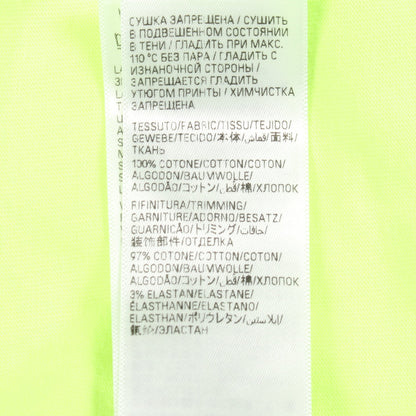 СУШКА ЗАПРЕЩЕНА / СУШИТЬ
В ПОДВЕШЕННОМ СОСТОЯНИИ
В ТЕНИ / ГЛАДИТЬ ПРИ МАКС.
110 °C БЕЗ ПАРА / ГЛАДИТЬ С
ИЗНАНОЧНОЙ СТОРОНЫ /
ЗАПРЕЩАЕТСЯ ГЛАДИТЬ
УТЮГОМ ПРИНТЫ / ХИМЧИСТКА
ЗАПРЕЩЕНА
TESSUTO/FABRIC/TISSU/TEJIDO/
GEWEBE/TECIDO/本体/قماش/面料/
ТКАНЬ
100% COTONE/COTTON/COTON/
ALGODÓN/BAUMWOLLE/
ALGODÃO/コットン/قطن/棉/ХЛОПОК
RIFINITURA/TRIMMING/
GARNITURE/ADORNO/BESATZ/
GUARNIÇÃO/トリミング/حافات/
装饰部件/ОТДЕЛКА
97% COTONE/COTTON/COTON/
ALGODÓN/BAUMWOLLE/
ALGODÃO/コットン/قطن/棉/ХЛОПОК
3% ELASTAN/ELASTANE/
ÉLASTHANNE/ELASTANO/
ELASTHAN/ポリウレタン/إيلاستين/
氨纶/ЭЛАСТАН